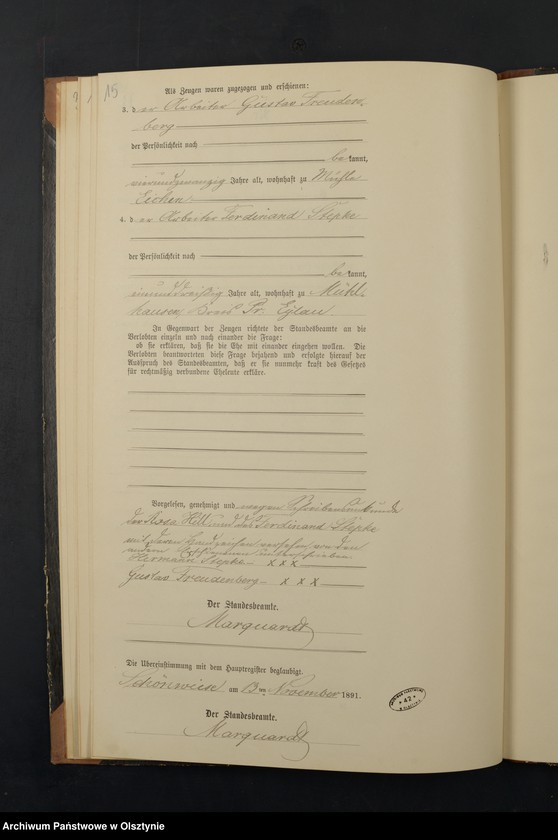 15
Als Zeugen waren zugezogen und erschienen:
3. d er Arbeiter Gustav Freuden-
berg
der Persönlichkeit nach
be kannt,
vierundzwanzig Jahre alt, wohnhaft zu Mühle
Eichen
4. d er Arbeiter Ferdinand Stepke
der Persönlichkeit nach
be kannt,
einunddreißig Jahre alt, wohnhaft zu Mühl-
hausen, Kreis Pr. Eylau
In Gegenwart der Zeugen richtete der Standesbeamte an die
Verlobten einzeln und nach einander die Frage:
ob sie erklären, daß sie die Ehe mit einander eingehen wollen. Die
Verlobten beantworteten diese Frage bejahend und erfolgte hierauf der
Ausspruch des Standesbeamten, daß er sie nunmehr kraft des Gesetzes
für rechtmäßig verbundene Eheleute erkläre.
Vorgelesen, genehmigt und wegen Schreibensunkunde
der Rosa Hell und des Ferdinand Stepke
mit deren Handzeichen versehen von den
andern unterschrieben
Hermann Stepke – x x x
Gustav Freudenberg – x x x
Der Standesbeamte.
Marquardt
Die Übereinstimmung mit dem Hauptregister beglaubigt.
Schönwiese am 13 ten November 1891.
Der Standesbeamte.
Marquardt
* 42 *
Archiwum Państwowe w Olsztynie